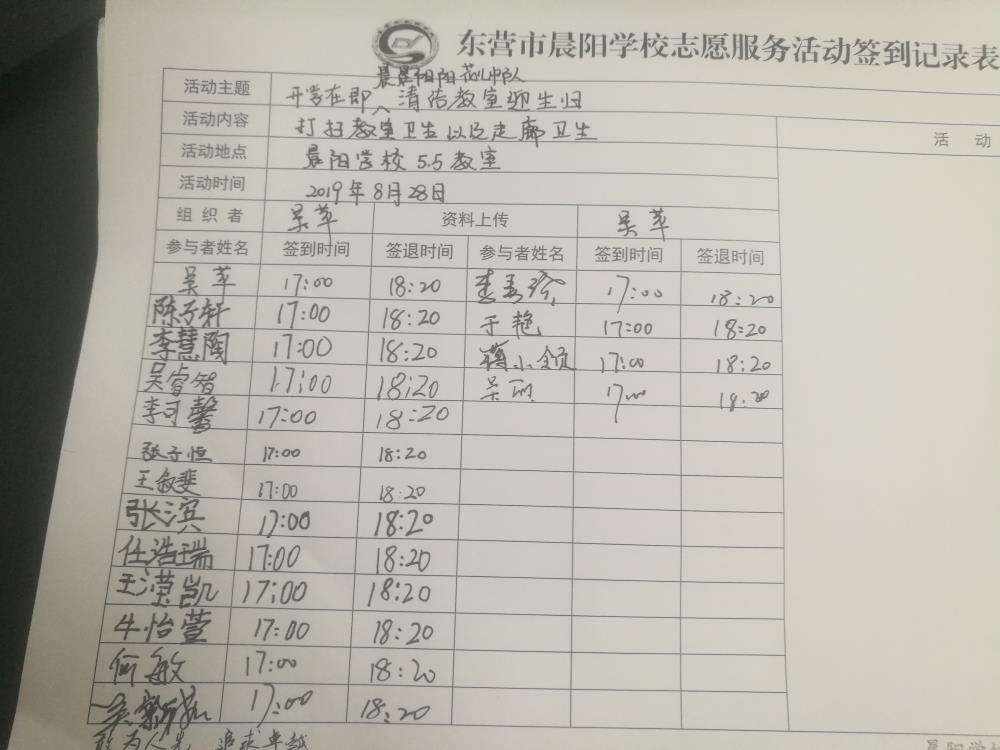 东营市晨阳学校志愿服务活动签到记录表
活动主题 开学在即 清洁教室迎生归
晨晨阳阳花儿中队
活动内容 打扫教室卫生以及走廊卫生
活动地点 晨阳学校 5.5 教室
活动时间 2019年8月28日
活 动
组织者 吴苹 资料上传 吴苹
参与者姓名 签到时间 签退时间 参与者姓名 签到时间 签退时间
吴苹 17:00 18:20 李 17:00 18:20
陈子轩 17:00 18:20 于艳 17:00 18:20
李慧陶 17:00 18:20 蒋小 17:00 18:20
吴睿智 17:00 18:20 吴丽 17:00 18:20
李可馨 17:00 18:20
张子恒 17:00 18:20
王叙斐 17:00 18:20
张滨 17:00 18:20
任浩瑞 17:00 18:20
王滢凯 17:00 18:20
牛怡萱 17:00 18:20
何敏 17:00 18:20
吴 17:00 18:20
敢为人先 追求卓越
晨阳学